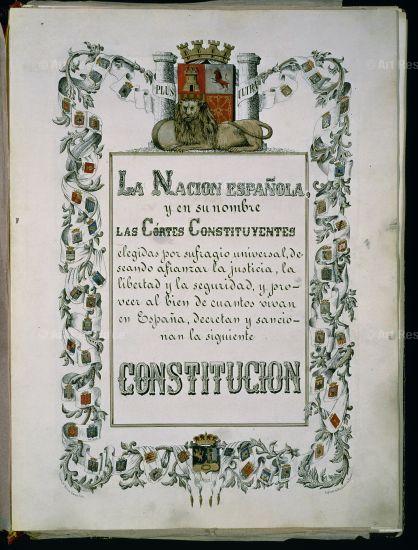 PLUS ULTRA
LA NACION ESPAÑOLA,
y en su nombre
LAS CÓRTES CONSTITUYENTES
elegidas por sufragio universal, de-
seando afianzar la justicia, la
libertad y la seguridad, y pro-
veer al bien de cuantos vivan
en España, decretan y sancio-
nan la siguiente
CONSTITUCION